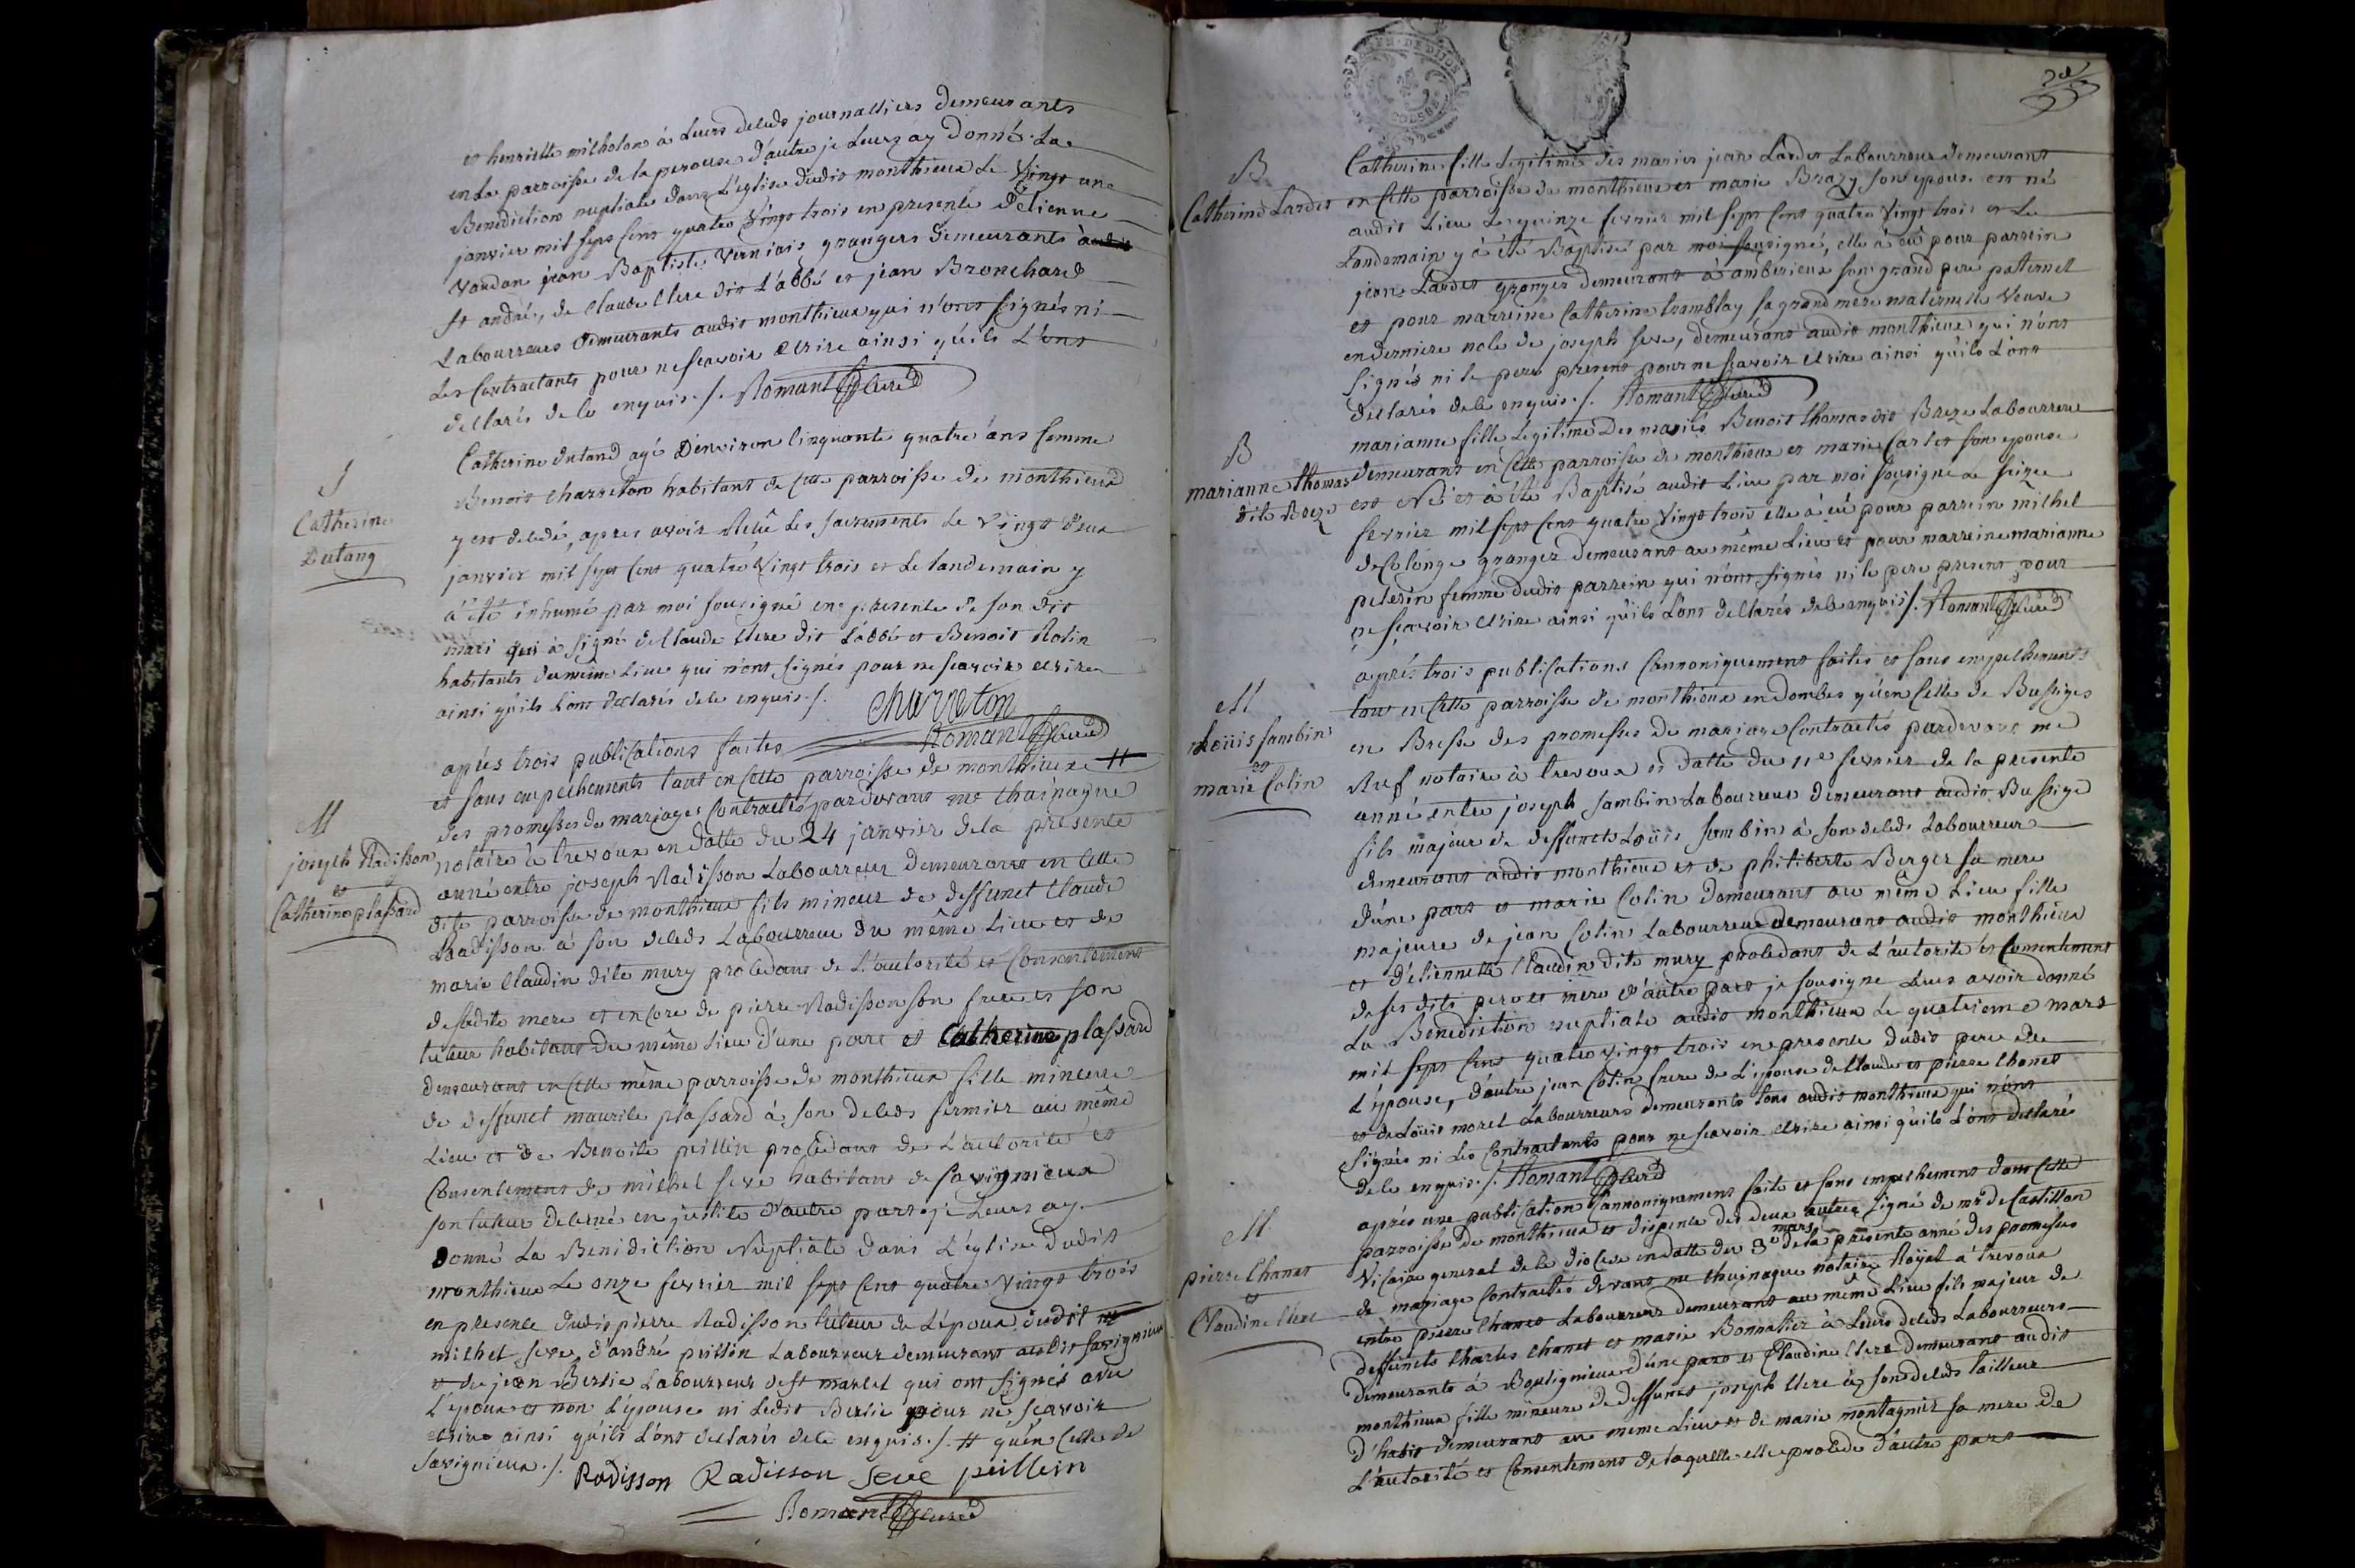 et henriette milholon à Leurs deleds journalliers demeurants
en La parroisse de la perouse d'autre je Leurs ay donné La
Benediction nuptiale dans L'eglise dudit monthieux Le vingt une
janvier mil sept cent quatre vingt trois en presente d'etienne
vaudan jean Baptiste verniais grangers demeurants à
st andré, de claude clere dit L'abbé et jean Bronchard
Labourreurs demeurants audit monthieux qui n'ont signés ni
Les Contractants pour ne scavoir ecrire ainsi qu'ils L'ont
declarés de le enquis ./. Romant curé
J
Catherine
Dutang
Catherine dutand agé d'environ cinquante quatre ans femme
Benoit charreton habitant de cette parroisse de monthieux
y est decedé, apres avoir Recû Les sacrements Le vingt deux
janvier mil sept cent quatre vingt trois et Le landemain y
à été inhumé par moi sousigné en presente de son dit
mari qui à signé de claude clere dit L'abbé et Benoit Rolin
habitants du même Lieu qui n'ont signés pour ne scavoir ecrire
ainsi qu'ils L'ont declarés de le enquis ./. charreton
Romant curé
M
joseph Radisson
et
Catherine plassard
après trois publications faites
et sans empechements tant en cette parroisse de monthieux #
des promesses de mariages Contractés pardevant me chainagne
notaire à trevoux en datte du 24 janvier de la presente
anné entre joseph Radisson Labourreur demeurant en cette
dite parroisse de monthieux fils mineur de deffunct claude
Radisson à son deleds Labourreur du même Lieu et de
marie claudin dite mury procedant de L'autorité et Consentement
de sadite mere et encore de pierre Radisson son frere et son
tuteur habitant du même Lieu d'une part et Catherine plassard
demeurant en cette même parroisse de monthieux fille mineure
de deffunct maurile plassard à son deleds fermier au même
Lieu et de Benoite peillin procedant de L'autorité et
Consentement de michel seve habitant de savignieux
son tuteur decerné en justice d'autre part je Leurs ay
donné La Benidiction Nuptiale dans L'eglise dudit
monthieux Le onze fevrier mil sept cent quatre vingt trois
en presence dudit pierre Radisson tuteur de L'epoux dudit
michel seve, d'andré peillin Labourreur demeurant audit savignieux
et de jean Berlie Labourreur de st marcel qui ont signés avec
L'epoux et non L'epouse ni Ledit Berlie pour ne scavoir
ecrire ainsi qu'ils L'ont declarés de le enquis ./. # qu'en celle de
savignieux ./. Radisson Radisson seve peillin
Romant curé
B
Catherine Lardet
Catherine fille Legitime des mariés jean Lardet Labourreur demeurant
en cette parroisse de monthieux et marie Brazy son epouse est né
audit Lieu Le quinze fevrier mil sept cent quatre vingt trois et Le
Landemain y à été Baptisé par moi sousigné, elle à eû pour parrein
jean Lardet granger demeurant à amberieux son grand pere paternel
et pour marreine Catherine tramblay sa grand mere maternelle veuve
en derniere nole de joseph seve, demeurant audit monthieux qui n'ont
signés ni le pere present pour ne scavoir ecrire ainsi qu'ils L'ont
declarés de le enquis ./. Romant curé
B
marianne thomas
dite Breze
marianne fille Legitime des mariés Benoit thomas dit Breze Labourreur
demeurant en cette parroisse de monthieux et marie Carlet son epouse
est Né et à été Baptisé audit Lieu par moi sousigné Le seize
fevrier mil sept cent quatre vingt trois elle à eû pour parrein michel
de Colonge granger demeurant au même Lieu et pour marreine marianne
pelerin femme dudit parrein qui n'ont signés ni le pere present pour
ne scavoir ecrire ainsi qu'ils L'ont declarés de le enquis ./. Romant curé
M
Loüis sambin
et
marie Colin
après trois publications Cannoniquement faites et sans empechements
tant en cette parroisse de monthieux en dombes qu'en celle de Bussiges
en Bresse des promesses de mariage Contractés pardevant me
Ruf notaire à trevoux et datté du 11e fevrier de la presente
anné entre joseph sambin Labourreur demeurant audit Bussige
fils majeur de deffuncts Loüis sambin à son deleds Labourreur
demeurant audit monthieux et de philiberte Berger sa mere
d'une part et marie Colin demeurant au même Lieu fille
majeure de jean Colin Labourreur demeurant audit monthieux
et d'etiennette Claudin dite mury procedant de L'autorité et Consentement
de ses dits pere et mere d'autre part je sousigne Leurs avoir donné
La Benediction nuptiale audit monthieux Le quatrieme mars
mil sept cent quatre vingt trois en presente dudit pere de
L'epouse, d'autre jean Colin frere de L'epouse de claude et pierre Chanet
et de Loüis morel Labourreurs demeurants tous audit monthieux qui n'ont
signés ni Les Contractants pour ne scavoir ecrire ainsi qu'ils L'ont declarés
de le enquis ./. Romant curé
M
pierre Chanet
et
Claudine Clere
après une publication Cannoniquement faite et sans empechement dans cette
parroisse de monthieux et dispence des deux autres signé de mr de Castillon
vicaire general de le diocese en datte du 3e mars de la presente anné des promesses
de mariage Contractés devant me chainagne notaire Royal à trevoux
entre pierre Chanet Labourreur demeurant au même Lieu fils majeur de
deffuncts charles Chanet et marie Bonnatier à Leurs deleds Labourreurs
demeurants à Bouligneux d'une part et Claudine Clere demeurant audit
monthieux fille mineure de deffunct joseph Clere à son deleds tailleur
d'habit demeurant au meme Lieu et de marie montagnier sa mere de
L'autorité et Consentement de laquelle elle procede d'autre part